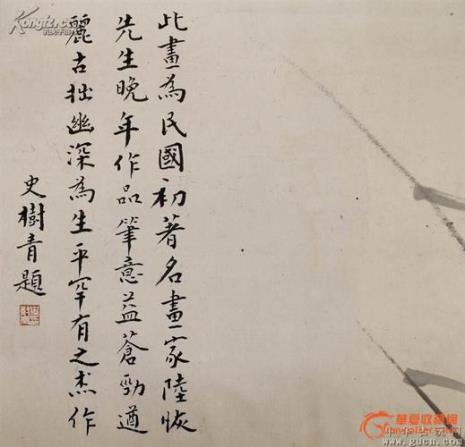 此畫為民國初著名畫家陸恢
先生晚年作品筆意益蒼勁遒
麗古拙幽深為生平罕有之杰作
史樹青題
Kongfz.com
華夏收藏網